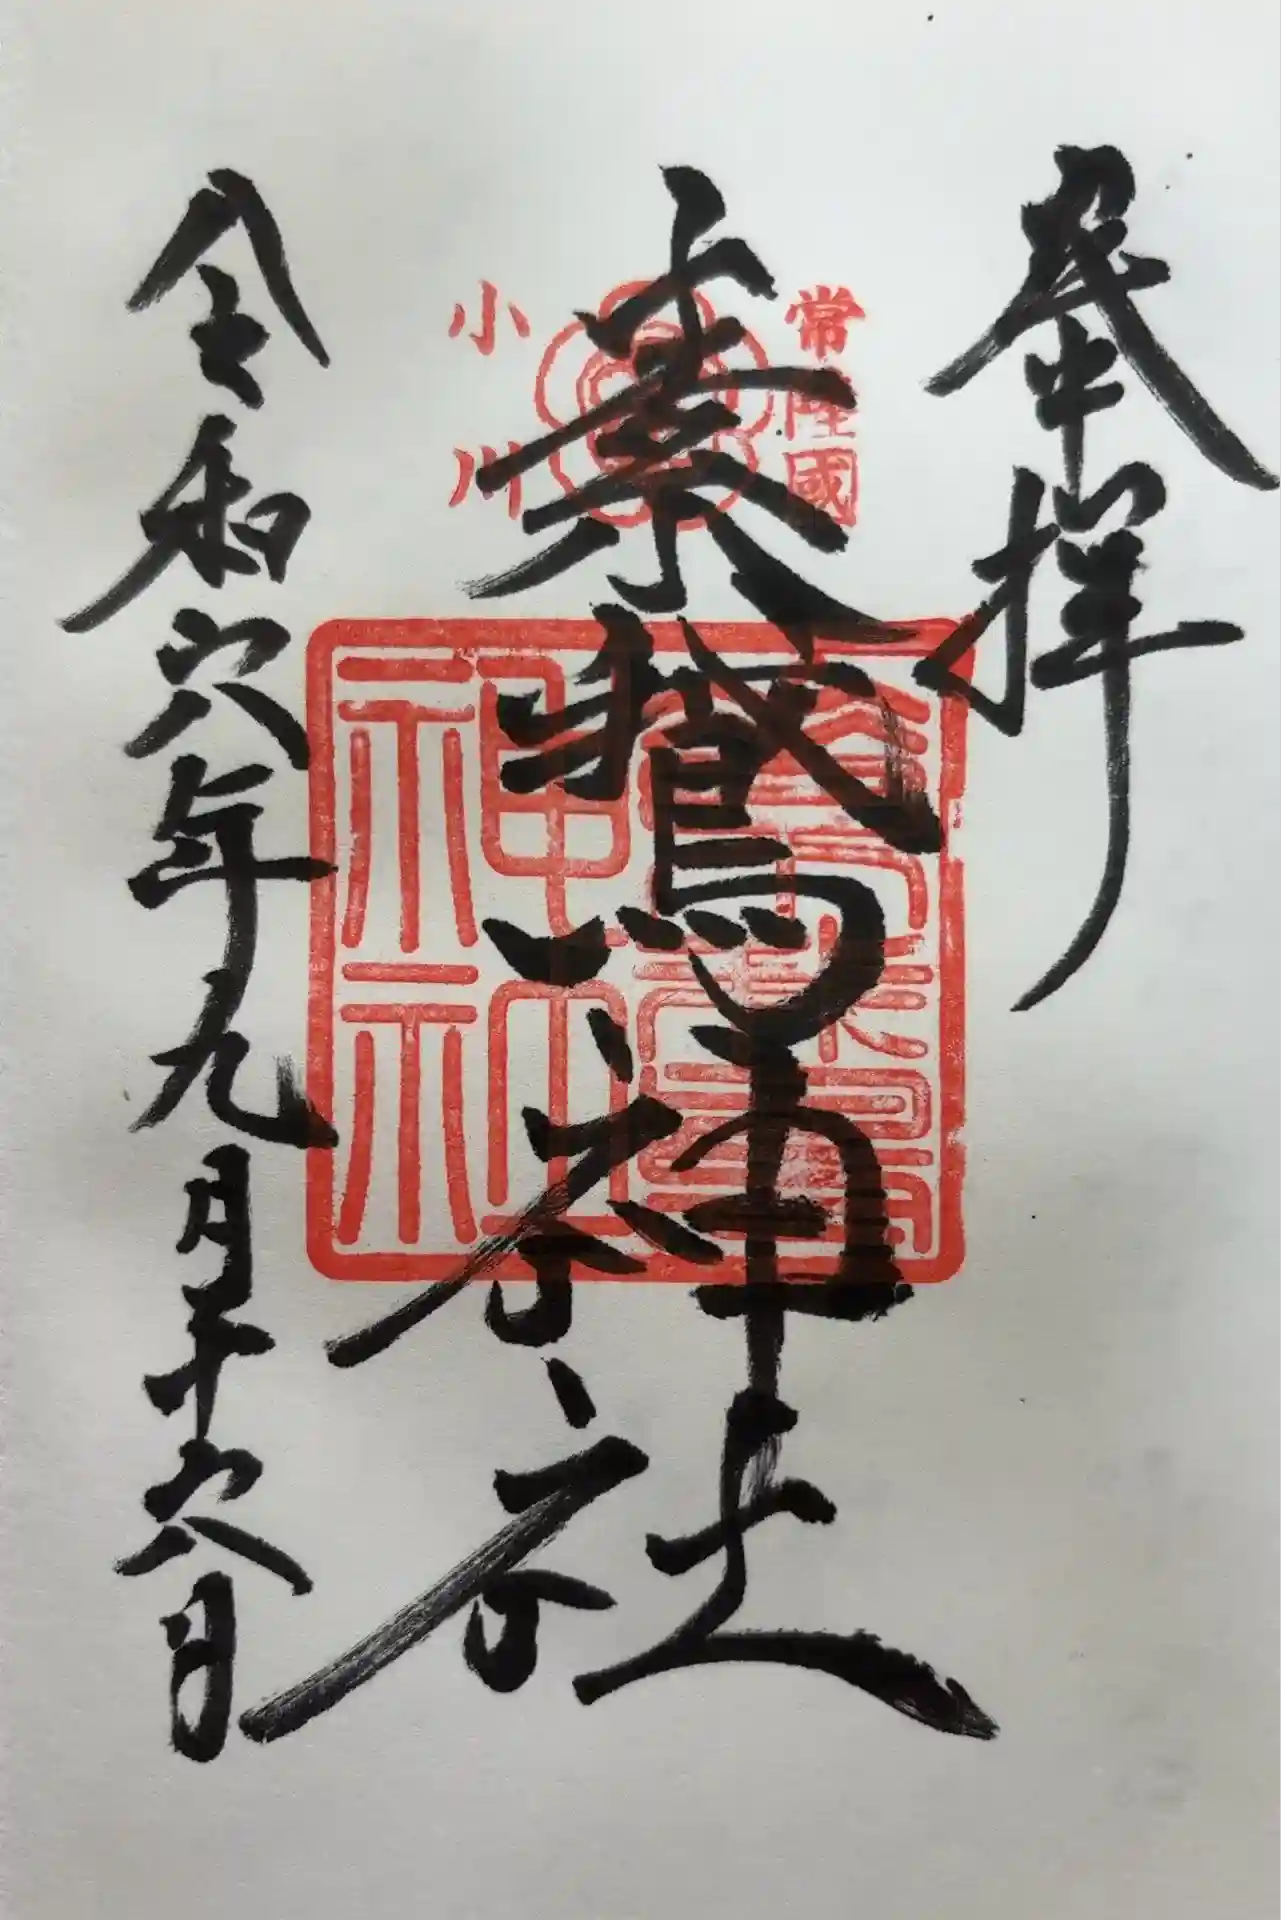 奉拝
常陸國
素鵞神社
小川
令和六年九月十六日